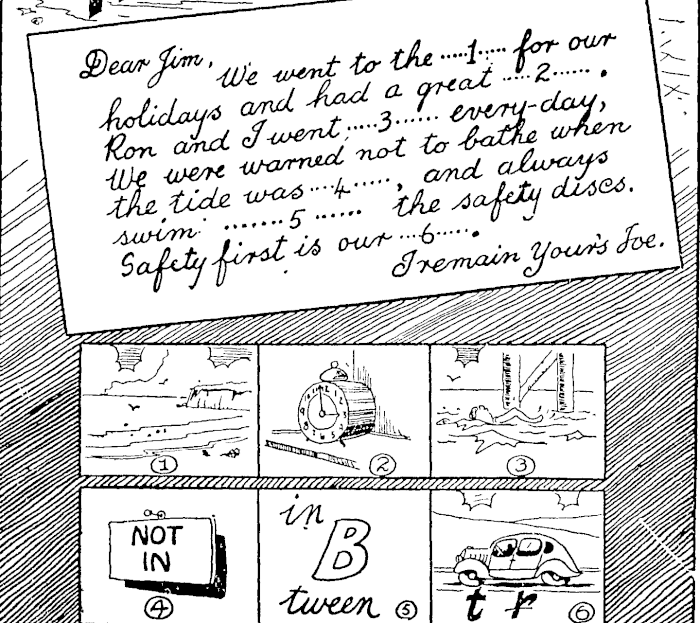 Dear Jim,
We went to the .....1..... for our
holidays and had a great .....2...... .
Ron and I went .....3...... every-day,
We were warned not to bathe when
the tide was ....4....., and always
swim ........5 ...... the safety discs.
Safety first is our ...6......
I remain Your's Joe.
1
2
3
NOT
IN
4
in
B
tween
5
t r
6